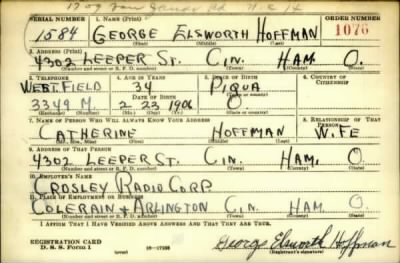 1709 Van Zandt Rd N.C.H
SERIAL NUMBER 1. NAME (Print) ORDER NUMBER
1584 GEORGE ELSWORTH HOFFMAN 1076
(First) (Middle) (Last)
2. ADDRESS (Print)
4302 LEEPER ST. CIN. HAM. O.
(Number and street or R. F. D. number) (Town) (County) (State)
3. TELEPHONE 4. AGE IN YEARS 5. PLACE OF BIRTH 6. COUNTRY OF CITIZENSHIP
WESTFIELD 34 PIQUA
DATE OF BIRTH (Town or county)
3349 M. 2 23 1906 O
(Exchange) (Number) (Mo.) (Day) (Yr.) (State or country)
7. NAME OF PERSON WHO WILL ALWAYS KNOW YOUR ADDRESS 8. RELATIONSHIP OF THAT PERSON
CATHERINE HOFFMAN WIFE
(Mr., Mrs., Miss) (First) (Middle) (Last)
9. ADDRESS OF THAT PERSON
4302 LEEPER ST. CIN. HAM. O.
(Number and street or R. F. D. number) (Town) (County) (State)
10. EMPLOYER'S NAME
CROSLEY RADIO CORP
11. PLACE OF EMPLOYMENT OR BUSINESS
COLERAIN + ARLINGTON CIN HAM O
(Number and street or R. F. D. number) (Town) (County) (State)
I AFFIRM THAT I HAVE VERIFIED ABOVE ANSWERS AND THAT THEY ARE TRUE.
REGISTRATION CARD
D. S. S. Form 1 (over) 16-17105 George Elsworth Hoffman
(Registrant's signature)